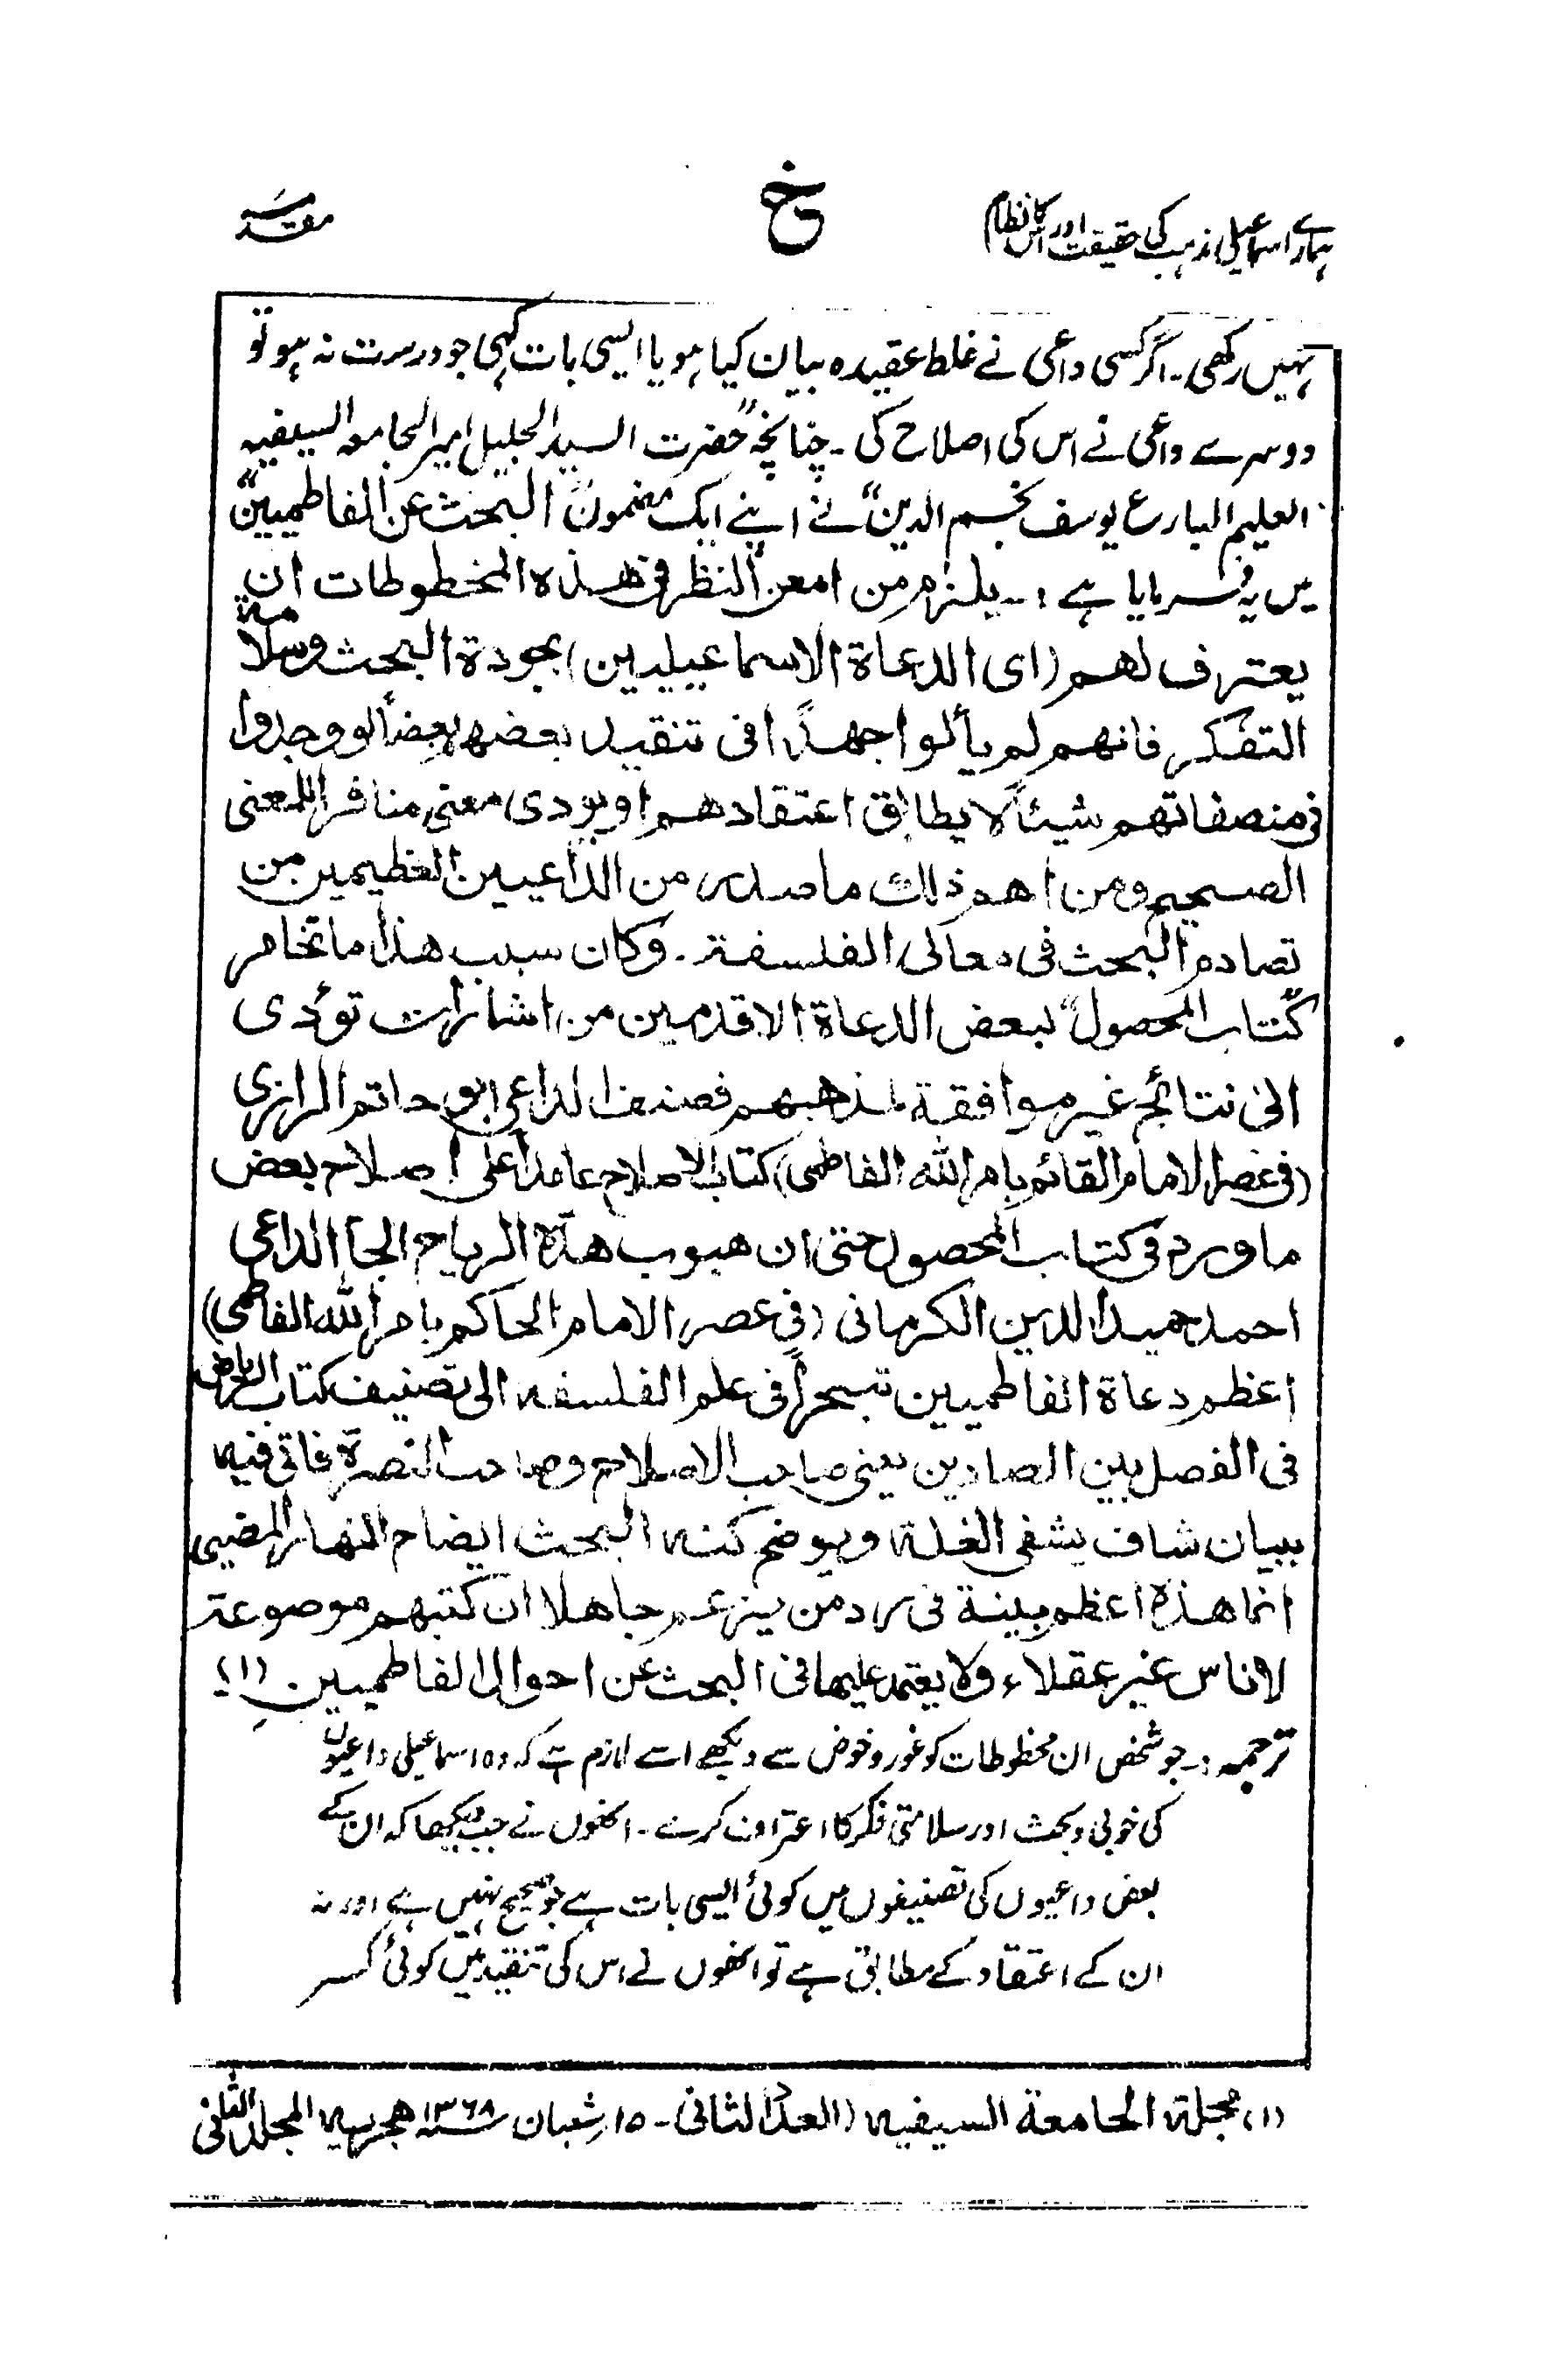 ہمارے اسماعیلی مذہب کی حقیقت اور اس کا نظام
خ
مقدمہ
نہیں رکھی۔ اگر کسی داعی نے غلط عقیدہ بیان کیا ہو یا ایسی بات کہی جو درست نہ ہو تو
دوسرے داعی نے اس کی اصلاح کی۔ چنانچہ "حضرت السید الجلیل امیر الجامعہ السیفیہ
العلیم البارع یوسف نجم الدین" نے اپنے ایک مضمون "البحث عن الفاطمیین"
میں یہ فرمایا ہے :۔ یلزم من امعن النظر فی ھذہ المخطوطات ان
یعترف لھم (ای الدعاة الاسماعیلیین) بجودة البحث وسلامة
التفکر فانھم لم یألوا جھداً فی تنقید بعضھم بعضاً لو وجدوا
فی منصفاتھم شیئاً لا یطابق اعتقادھم او یودی معنی منافر اللمعنی
الصحیح ومن اھم ذلک ما صدر من الداعیین العظیمین من
تصادم البحث فی معالی الفلسفة۔ وکان سبب ھذا ما تخامر
کتاب "المحصول" لبعض الدعاة الاقدمین من اشارات تؤدی
الی نتائج غیر موافقة لمذھبھم فصنف الداعی ابو حاتم الرازی
(فی عصر الامام القائم بامر اللہ الفاطمی) کتاب الاصلاح عامداً علی اصلاح بعض
ما ورد فی کتاب المحصول حتی ان ھبوب ھذہ الریاح الجأ الداعی
احمد حمید الدین الکرمانی (فی عصر الامام الحاکم بامر اللہ الفاطمی)
اعظم دعاة الفاطمیین تبحراً فی علم الفلسفہ الی تصنیف کتاب الریاض
فی الفصل بین الصادین یعنی صاحب الاصلاح وصاحب النصرة فاتی فیہ
ببیان شاف یشفی الغلة ویوضح کنہ البحث ایضاح النھار المضیی
انما ھذہ اعظم بینة فی رد من یزعم جاھلا ان کتبھم موضوعة
لاناس غیر عقلاء ولا یعتمد علیھا فی البحث عن احوال الفاطمیین (۱)
ترجمہ :۔ جو شخص ان مخطوطات کو غور و خوض سے دیکھے اسے لازم ہے کہ وہ اسماعیلی داعیوں
کی خوبی بحث اور سلامتی فکر کا اعتراف کرے۔ انھوں نے جب دیکھا کہ ان کے
بعض داعیوں کی تصنیفوں میں کوئی ایسی بات ہے جو صحیح نہیں ہے اور نہ
ان کے اعتقاد کے مطابق ہے تو انھوں نے اس کی تنقید میں کوئی کسر
(۱) مجلة الجامعة السیفیہ (العدد الثانی۔ ۱۵ شعبان سنہ ۱۳۶۸ ھجریہ المجلد الثانی